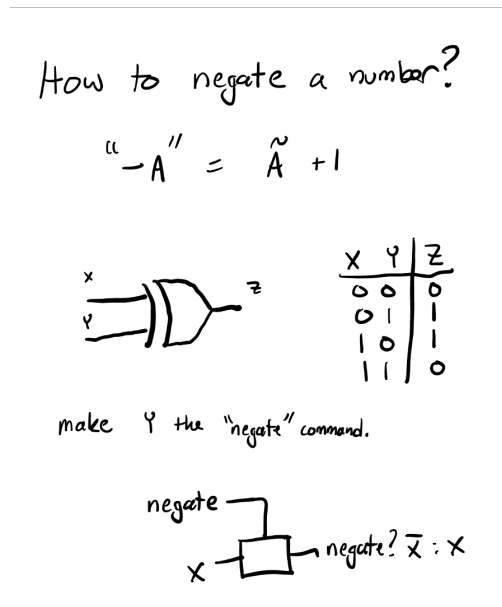 How to negate a number?
"-A" = Ã + 1
X
Y
Z
X Y Z
0 0 0
0 1 1
1 0 1
1 1 0
make Y the "negate" command.
negate
X
negate? X̅ : X